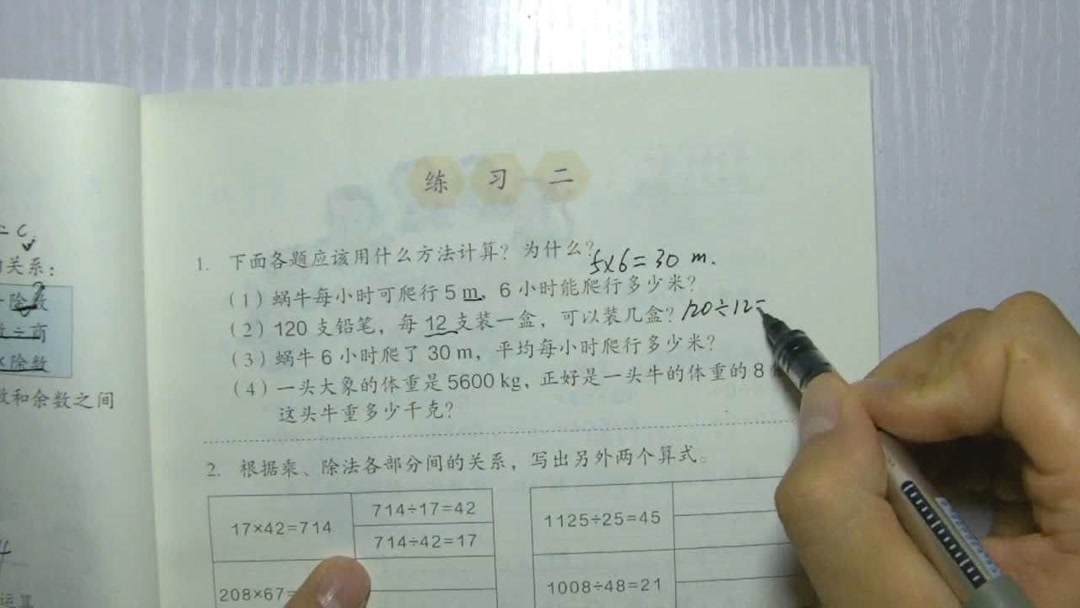 练 习 二
1. 下面各题应该用什么方法计算？为什么？
5×6=30 m.
（1）蜗牛每小时可爬行 5 m，6 小时能爬行多少米？
（2）120 支铅笔，每 12 支装一盒，可以装几盒？ 120÷12=
（3）蜗牛 6 小时爬了 30 m，平均每小时爬行多少米？
（4）一头大象的体重是 5600 kg，正好是一头牛的体重的 8
这头牛重多少千克？
2. 根据乘、除法各部分间的关系，写出另外两个算式。
17×42=714
714÷17=42
714÷42=17
208×67=
1125÷25=45
1008÷48=21
关系：
除数
商
除数
数和余数之间
运算